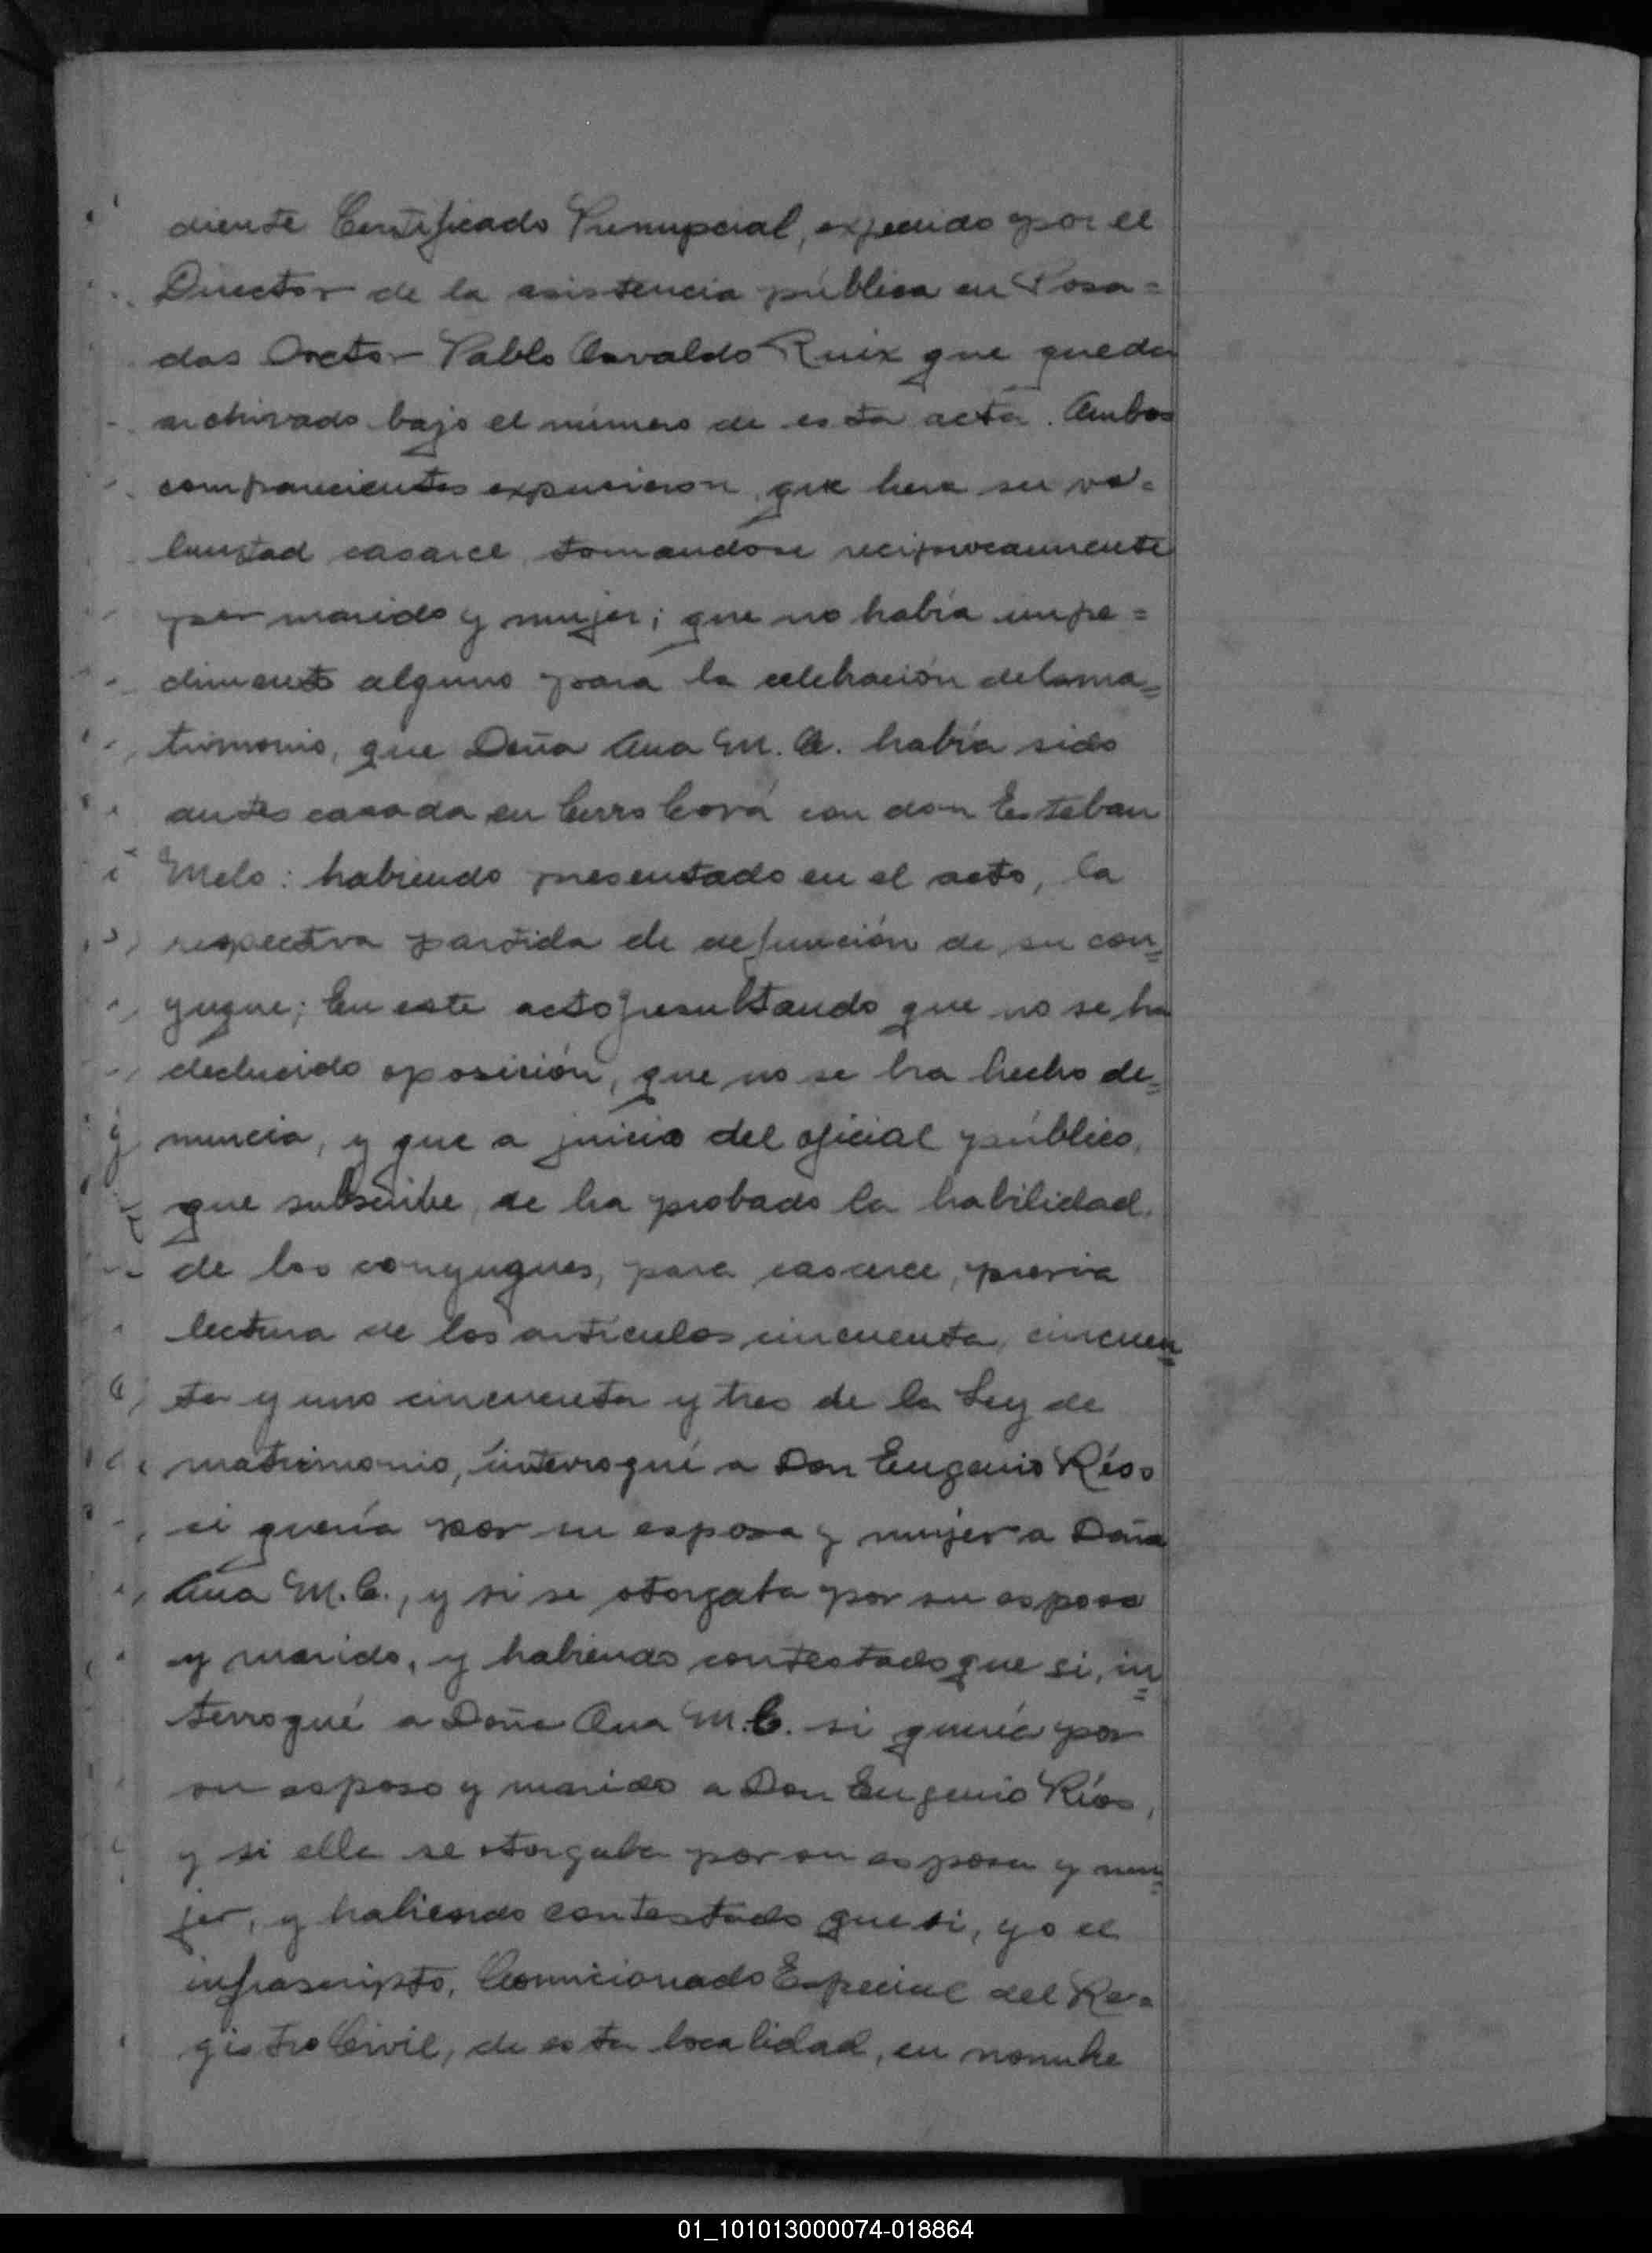 diente Certificado Prenupcial, expedido por el
Director de la asistencia pública en Posa=
das Doctor Pablo Osvaldo Ruix que queda
archivado bajo el número de esta acta. Ambos
comparecientes expusieron, que hera su vo=
luntad casarce, tomandose reciprocamente
por marido y mujer; que no había impe=
dimento alguno para la celebración del ma=
trimonio, que Doña Ana M. C. había sido
antes casada en Cerro Corá con don Esteban
Melo: habiendo presentado en el acto, la
respectiva partida de defunción de su con=
yugue; En este acto, resultando que no se ha
deducido oposición, que no se ha hecho de=
nuncia, y que a juicio del oficial público,
que subscribe, se ha probado la habilidad,
de los conyugues, para casarce, previa
lectura de los artículos cincuenta, cincuen=
ta y uno cincuenta y tres de la Ley de
matrimonio, interrogué a Don Eugenio Ríos
si quería por su esposa y mujer a Doña
Ana M. C., y si se otorgaba por su esposo
y marido, y habiendo contestado que si, in=
terrogué a Doña Ana M. C. si quería por
su esposo y marido a Don Eugenio Ríos,
y si ella se otorgaba por su esposa y mu=
jer, y habiendo contestado que si, yo el
infrascripto, Comicionado Especial del Re=
gistro Civil, de esta localidad, en nombre
01_101013000074-018864